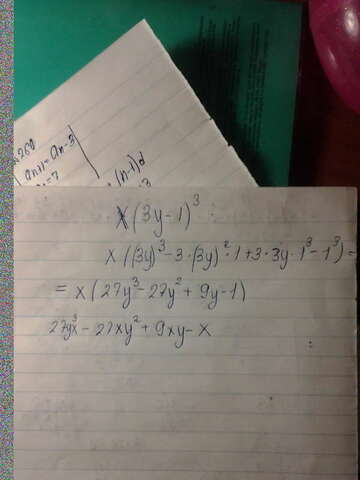 №260
an+1 = an - 3
(n-1)d
x(3y-1)³
x((3y)³-3·(3y)²·1+3·3y·1³-1³)=
= x(27y³-27y²+9y-1)
27y³x-27xy²+9xy-x